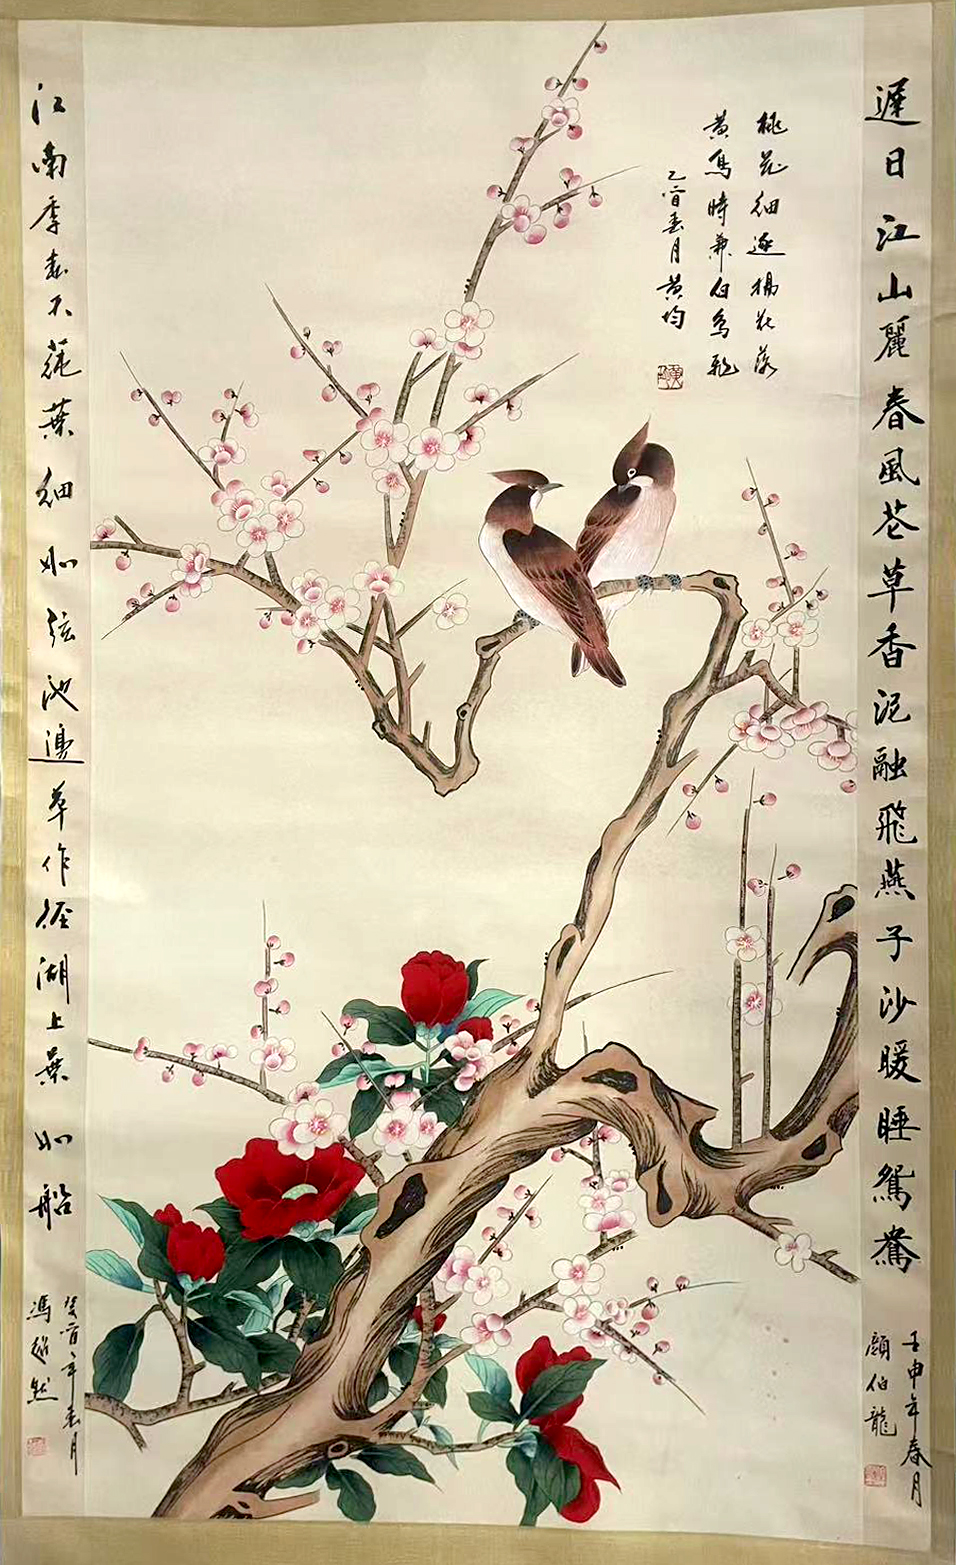 遲日江山麗春風花草香泥融飛燕子沙暖睡鴛鴦
壬申年春月
顏伯龍
桃花細逐楊花落
黄鳥時兼白鳥飛
乙酉春月黄均
江南季春天蒓葉細如弦池邊草作徑湖上葉如船
癸酉年春月
馮超然